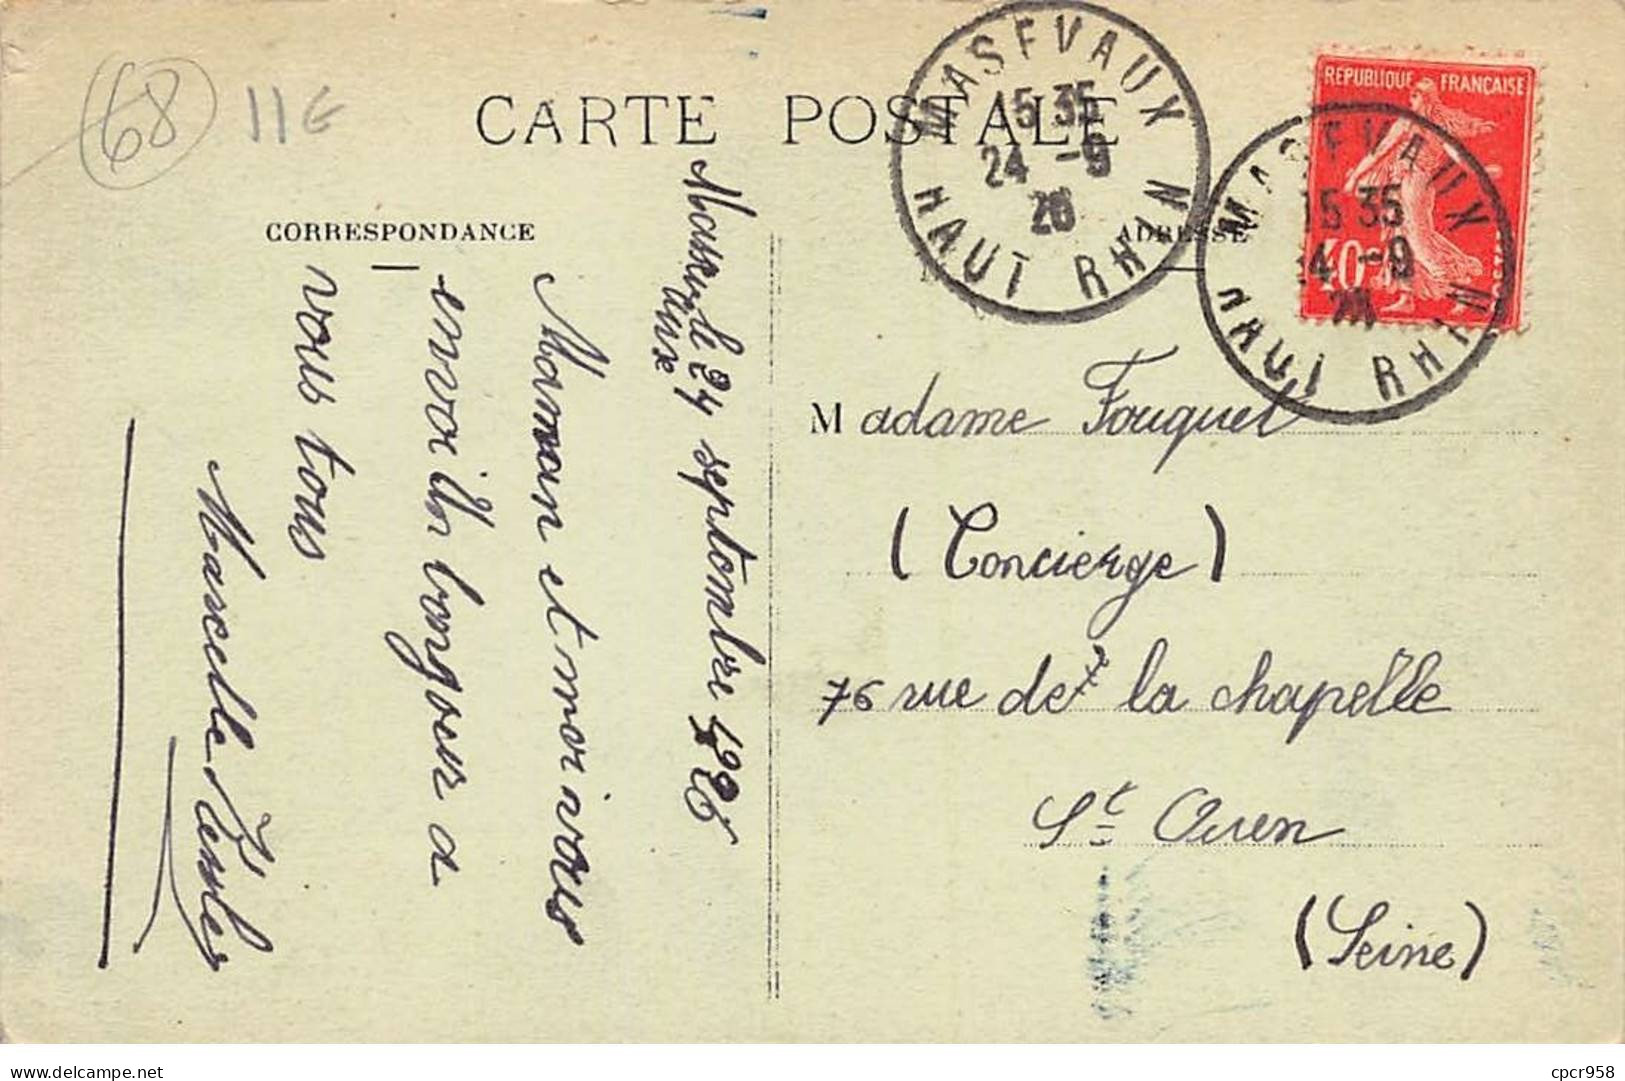 68
11€
CARTE POSTALE
CORRESPONDANCE
ADRESSE
MASEVAUX
15 35
24 -9
26
HAUT RHIN
REPUBLIQUE FRANÇAISE
40c
MASEVAUX
15 35
24 -9
26
HAUT RHIN
le 24 septembre 1926
Maman et moi vous
envoi un bonjour a
vous tous
Marcelle
Madame Fouquet
(Concierge)
76 rue de la chapelle
St Ouen
(Seine)
cpcr958